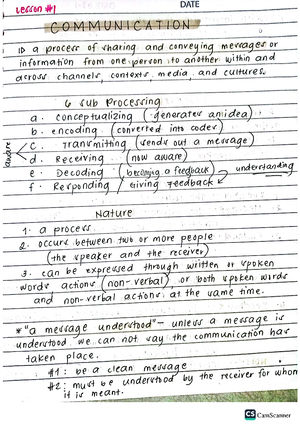 Lesson #1
DATE
COMMUNICATION
is a process of sharing and conveying messages or
information from one person to another within and
across channels, contexts, media and cultures.
6 Sub Processing
a. conceptualizing (generates an idea)
b. encoding (converted into codes)
aware
c. Transmitting (sends out a message)
d. Receiving (now aware)
e. Decoding (becoming a feedback)
understanding
f. Responding / Giving Feedback
Nature
1. a process
2. occurs between two or more people
(the speaker and the receiver)
3. can be expressed through written or spoken
words actions (non-verbal) or both spoken words
and non-verbal actions at the same time.
*"a message understood" - unless a message is
understood we can not say the communication has
taken place.
#1: be a clean message
#2: must be understood by the receiver for whom
it is meant.
CS CamScanner